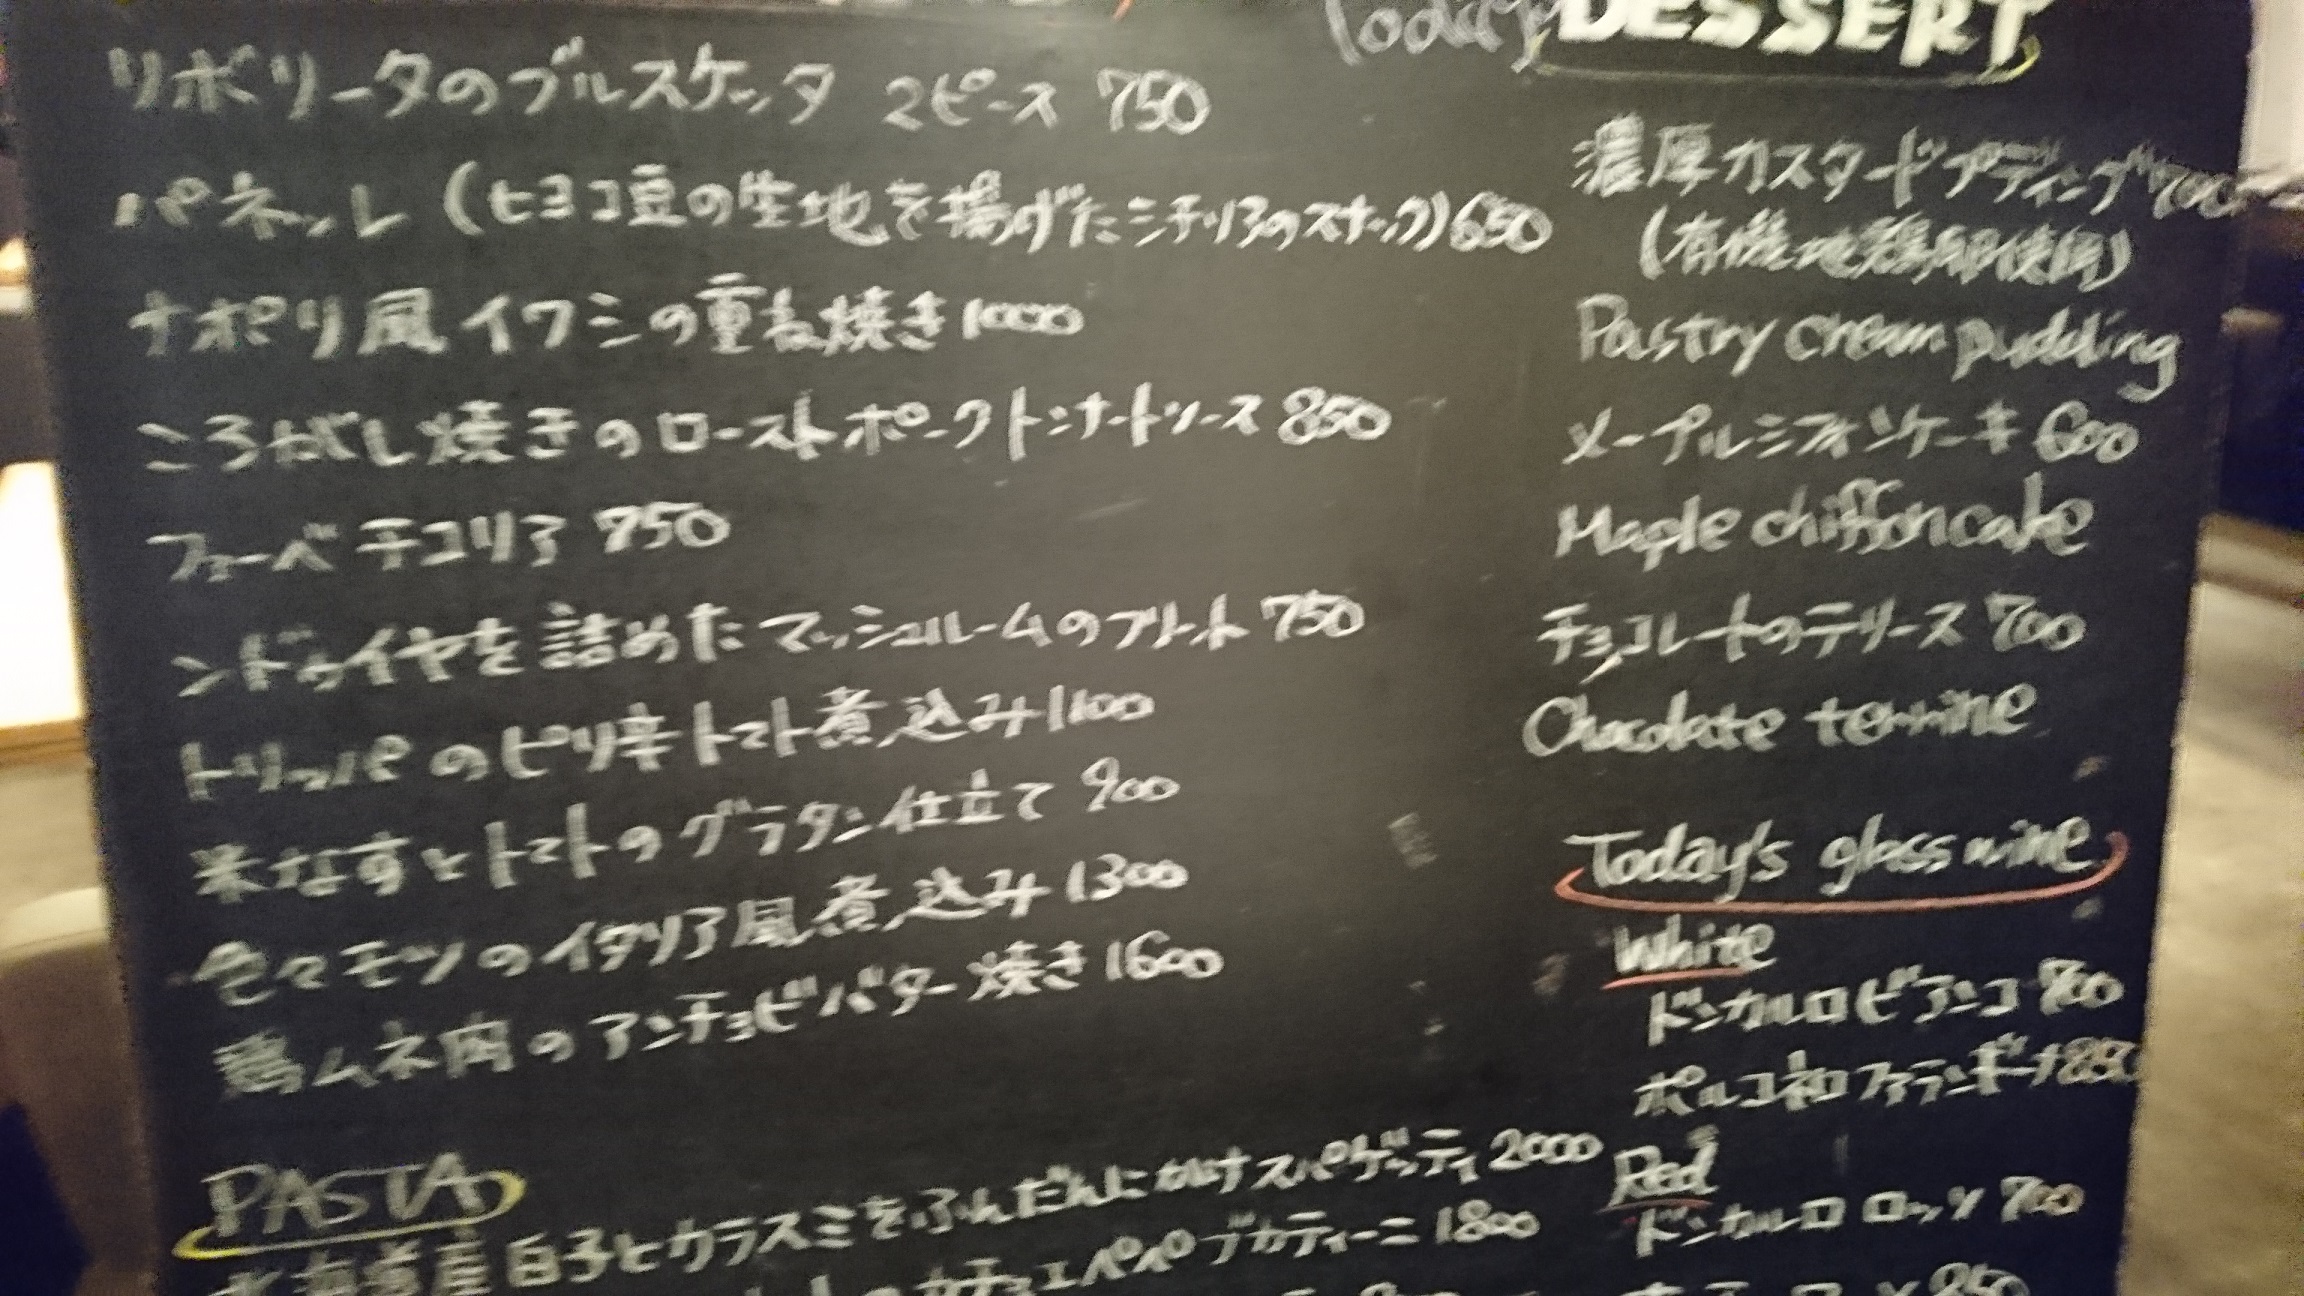 リボリータのブルスケッタ 2ピース 750
パネッレ (ヒヨコ豆の生地を揚げたシチリアのスナック) 650
ナポリ風イワシの重ね焼き 1000
ころがし焼きのローストポークトンナートソース 850
ファーベ チコリア 750
ンドゥイヤを詰めたマッシュルームのフリット 750
トリッパのピリ辛トマト煮込み 1100
米なすとトマトのグラタン仕立て 900
色々モツのイタリア風煮込み 1300
鶏ムネ肉のアンチョビバター焼き 1600
PASTA
北海道産白子とカラスミをふんだんにかけスパゲッティ 2000
カチョエペペ ブカティーニ 1800
Today DESSERT
濃厚カスタードプディング 700
(有機地鶏卵使用)
Pastry cream pudding
メープルシフォンケーキ 600
Maple chiffon cake
チョコレートのテリーヌ 700
Chocolate terrine
Today's glass wine
White
ドンカルロ ビアンコ 700
ポルコネロ ファランギーナ 850
Red
ドンカルロ ロッソ 700
850